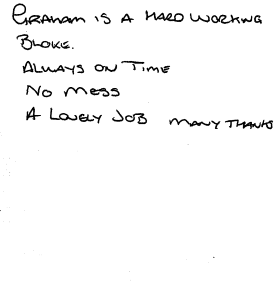 GRAHAM IS A HARD WORKING
BLOKE.
ALWAYS ON TIME
NO MESS
A LOVELY JOB MANY THANKS